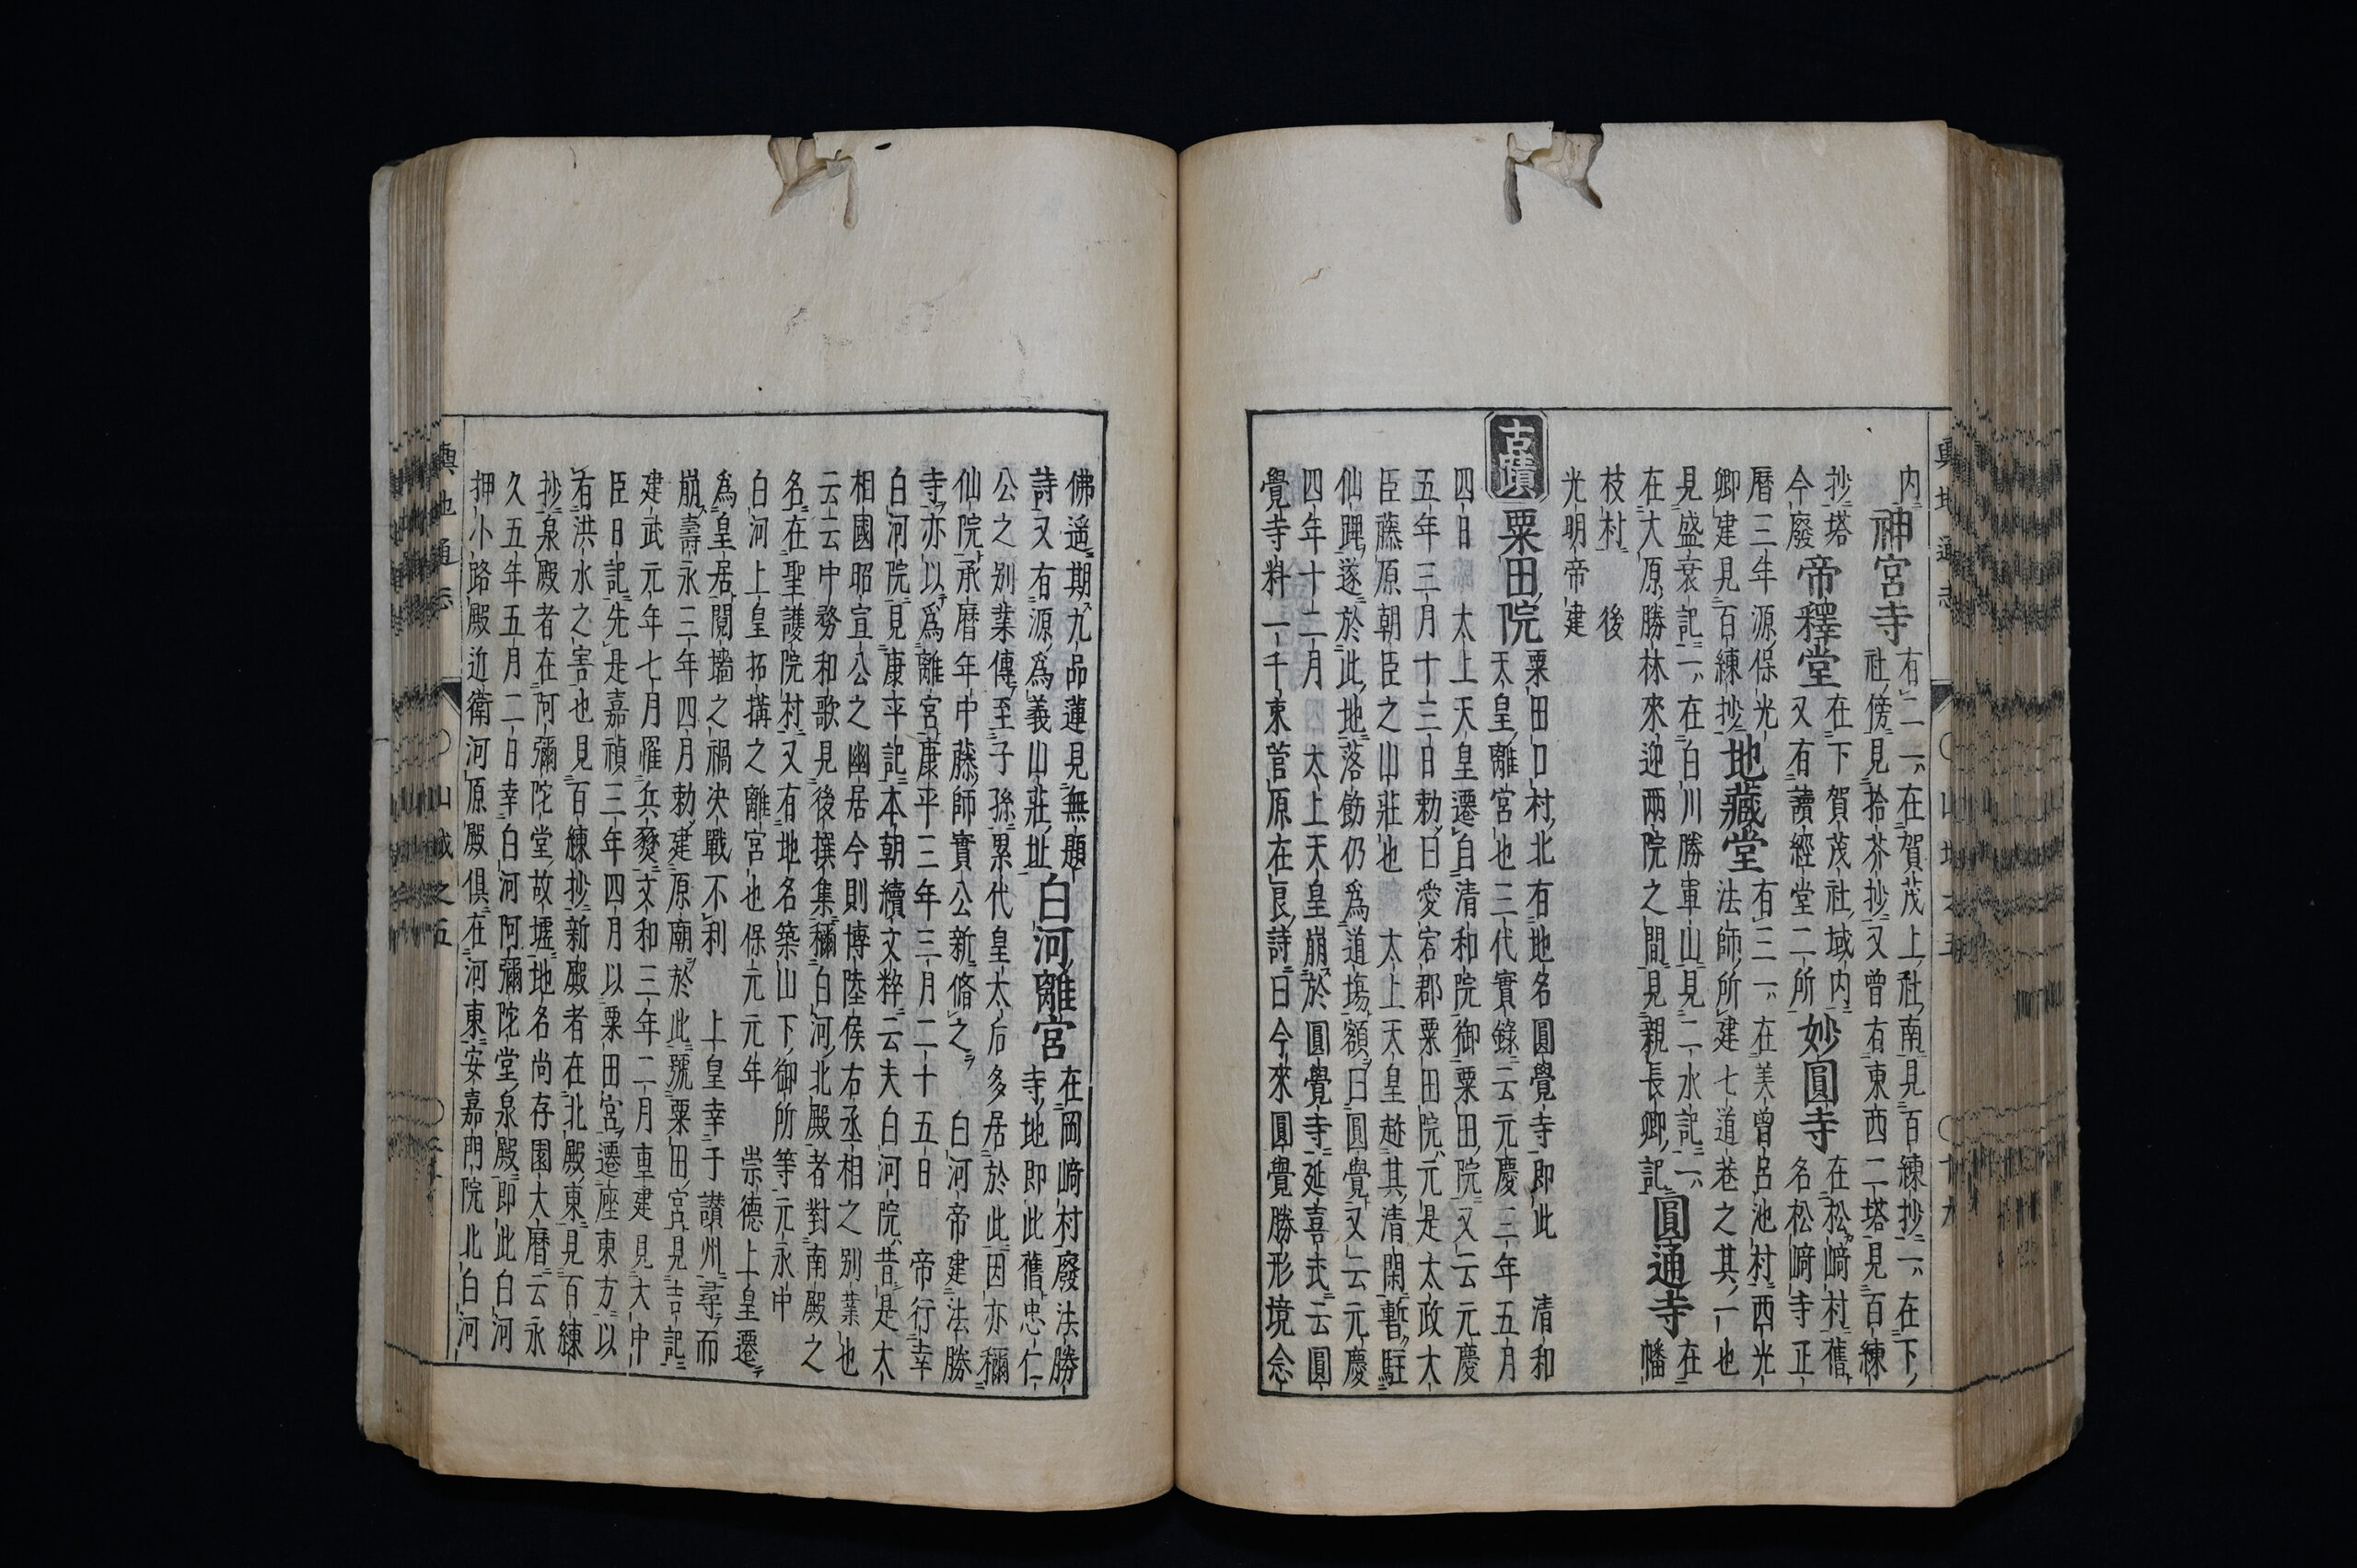 内神宮寺有二一在賀茂上社南見百練抄一在下
社傍見拾芥抄又曾有東西二塔見百練
抄塔
今廢帝釋堂在下賀茂社域内
又有讀經堂二所妙圓寺在松﨑村舊
名松﨑寺正
曆三年源保光
卿建見百練抄地藏堂有三一在美曾呂池村西光
法師所建七道巷之其一也
見盛衰記一在白川勝軍山見二水記一在
在大原勝林來迎兩院之間見親長卿記圓通寺幡
枝村 後
光明帝建
古蹟
粟田院粟田口村北有地名圓覺寺即此 清和
天皇離宮也三代實錄云元慶三年五月
四日 太上天皇遷自清和院御粟田院又云元慶
五年三月十三日勅曰愛宕郡粟田院元是太政大
臣藤原朝臣之山莊也 太上天皇趂其清閑暫駐
仙蹕遂於此地落餝仍爲道塲額曰圓覺又云元慶
四年十二月 太上天皇崩於圓覺寺延喜式云圓
覺寺料一千束菅原在良詩曰今來圓覺勝形境念
佛遥期九品蓮見無題
詩又有源爲義山莊址白河離宮在岡﨑村廢法勝
寺地即此舊忠仁
公之別業傳至子孫累代皇太后多居於此因亦稱
仙院承曆年中藤師實公新脩之 白河帝建法勝
寺亦以爲離宮康平三年三月二十五日 帝行幸
白河院見康平記本朝續文粹云夫白河院昔是大
相國昭宣公之幽居今則博陸侯右丞相之別業也
云云中務和歌見後撰集稱白河北殿者對南殿之
名在聖護院村又有地名築山下御所等元永中
白河上皇拓搆之離宮也保元元年 崇德上皇遷
爲皇居鬩墻之禍決戰不利 上皇幸于讃州尋而
崩壽永三年四月勅建原廟於此號粟田宮見吉記
建武元年七月罹兵燹文和三年二月重建見大中
臣日記先是嘉禎三年四月以粟田宮遷座東方以
有洪水之害也見百練抄新殿者在北殿東見百練
抄泉殿者在阿彌陀堂故墟地名尚存園大曆云永
久五年五月二日幸白河阿彌陀堂泉殿即此白河
押小路殿近衛河原殿俱在河東安嘉門院北白河
輿地通志 ○山城之五